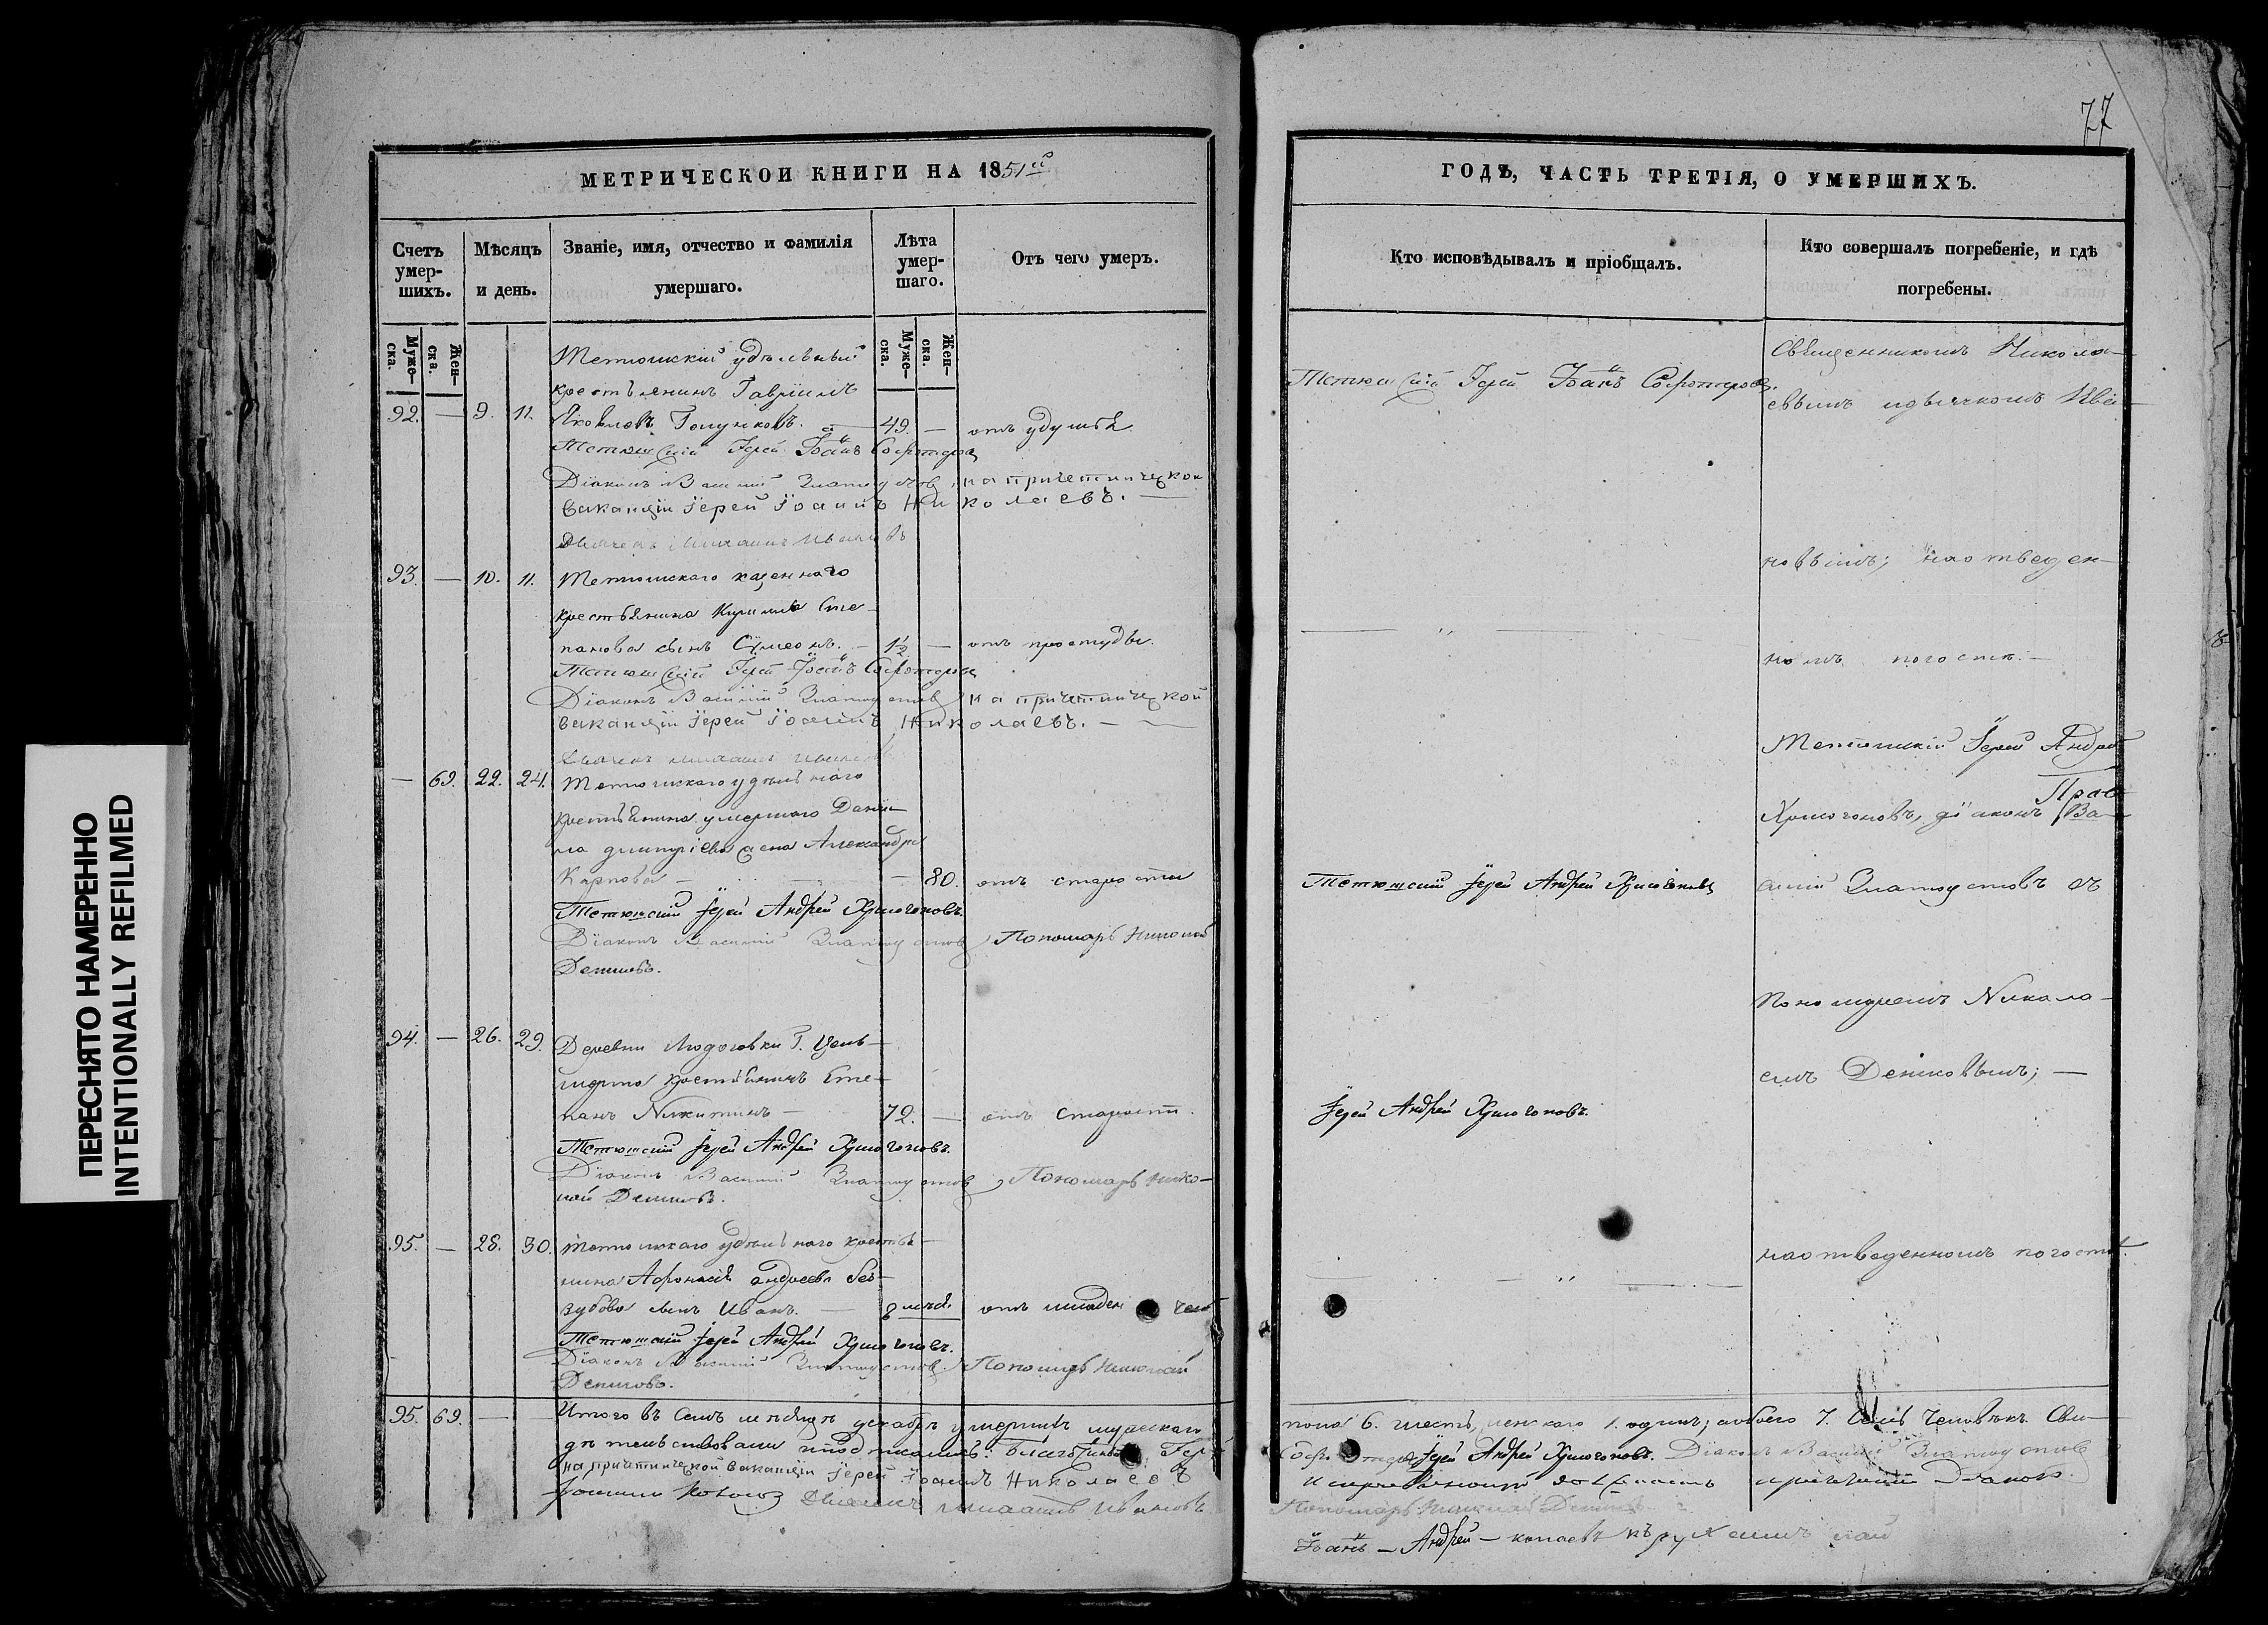 ПЕРЕСНЯТО НАМЕРЕННО
INTENTIONALLY REFILMED
МЕТРИЧЕСКОЙ КНИГИ НА 1851й
Счетъ умер-шихъ.
Мѣсяцъ и день.
Званіе, имя, отчество и фамилія умершаго.
Лѣта умер-шаго.
Отъ чего умеръ.
Муже-ска. Жен-ска.
Муже-ска. Жен-ска.
Тетюшскій удѣльный
крестьянинъ Гавріилъ
92. — 9. 11. Яковлевъ Голунковъ. — 49. — отъ удушья
Тетюшскій Іерей Іоаннъ
Діаконъ Василій Златоустовъ, на причетнической
вакансіи Іерей Іоаннъ Николаевъ. —
Дьячекъ Михаилъ Ивановъ
93. — 10. 11. Тетюшскаго казеннаго
крестьянина Кирилла Сте-
панова сынъ Сумеонъ. — 1/2 — отъ простуды.
Тетюшскій Іерей Іоаннъ
Діаконъ Василій Златоустовъ, на причетнической
вакансіи Іерей Іоаннъ Николаевъ. —
Дьячекъ Михаилъ Ивановъ
— 69. 22. 24. Тетюшскаго удѣльнаго
крестьянина умершаго Дани-
ла Димитріева жена Александра
Карпова — — 80. отъ старости
Тетюшскій Іерей Андрей Хрисогоновъ.
Діаконъ Василій Златоустовъ, Пономарь Николай
Денисовъ.
94. — 26. 29. Деревни
крестьянинъ Сте-
панъ Никитинъ — 72. — отъ старости.
Тетюшскій Іерей Андрей Хрисогоновъ.
Діаконъ Василій Златоустовъ, Пономарь Нико-
лай Денисовъ.
95. — 28. 30. Тетюшскаго удѣльнаго крестья-
нина Афонасія Андреева Без-
зубова сынъ Иванъ. — 8 отъ
Тетюшскій Іерей Андрей Хрисогоновъ.
Діаконъ Василій Златоустовъ. Пономарь Николай
Денисовъ.
95. 69. — Итого въ семъ мѣсяцѣ декабрѣ умершихъ мужескаго
на причетнической вакансіи Іерей Іоаннъ Николаевъ
Дьячекъ Михаилъ Ивановъ
77
ГОДЪ, ЧАСТЬ ТРЕТІЯ, О УМЕРШИХЪ.
Кто исповѣдывалъ и пріобщалъ.
Кто совершалъ погребеніе, и гдѣ погребены.
Тетюшскій Іерей Іоаннъ
Священникомъ Никола-
евымъ и дьячкомъ Ива-
новымъ; на отведен-
— " —
номъ погостѣ. —
Тетюшскій Іерей Андрей
Хрисогоновъ, діаконъ Ва-
Тетюшскій Іерей Андрей Хрисогоновъ
силій Златоустовъ съ
Пономаремъ Никола-
емъ Денисовымъ; —
Іерей Андрей Хрисогоновъ.
на отведенномъ погостѣ.
— " —
пола 6. шесть, женскаго 1. одинъ; обоего 7. семь человѣкъ. Сви-
Іерей Андрей Хрисогоновъ. Діаконъ Василій Златоустовъ
Пономарь Николай Денисовъ
Іоаннъ — Андрей —